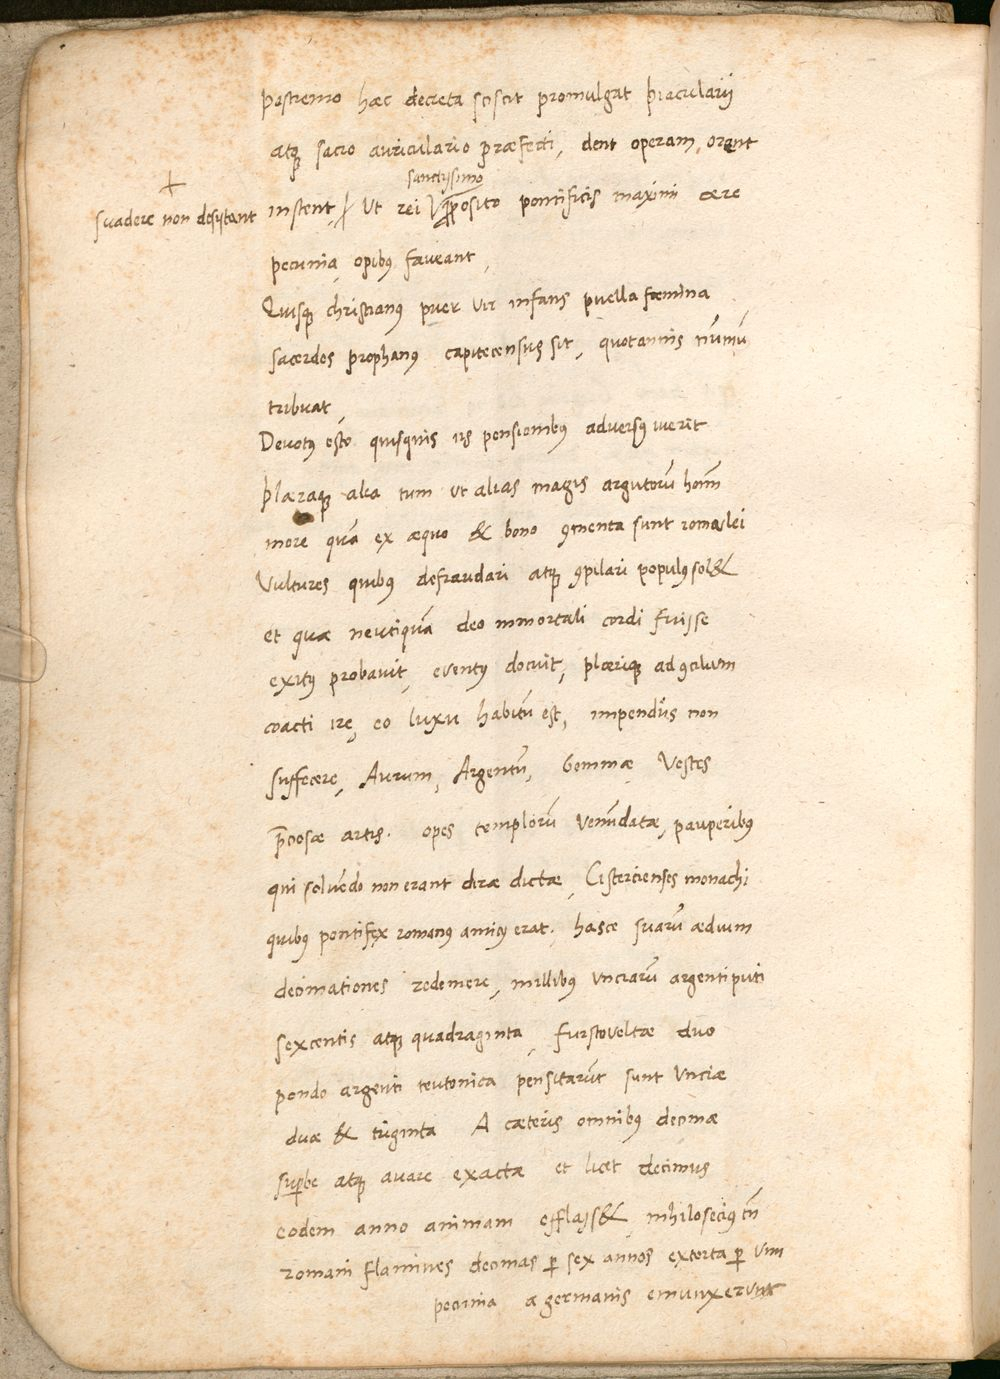 postremo hæc decreta sciscit promulgat piacularii
atq̃ sacro auriculario præfecti, dent operam, orent
sanctissimo
+
suadere non desistant
instent, ut rei propositо pontificis maximi aere
pecunia, opibꝰ faveant,
Quisq̃ christianꝰ puer vir infans puella fœmina
sacerdos prophanꝰ capitecensus sit, quotannis nūmū
tribuat,
Devotꝰ esto quisquis iis pensionibꝰ adversꝰ iverit
plæraq̃ alia tum ut alias magis argutorū homĩ
more quā ex æquo & bono ꝯmenta sunt romulei
Vultures quibꝰ defraudari atq̃ ꝯpilari populꝰ sol&
et quæ neutiquā deo immortali cordi fuisse
exitꝰ probavit, eventꝰ docuit, plœrique ad ꝯcilium
coacti ire, eo luxu habitū est, impendiis non
suffecere, Aurum, Argentū, Gemmæ Vestes
p̃ciosæ artis. opes templorū venūdatæ, pauperibꝰ
qui solvēdo non erant diræ dictæ, Cistercienses monachi
quibꝰ pontifex romanꝰ amicꝰ erat. hasce suarū ædium
decimationes redemere, millibꝰ unciarū argenti puti
sexcentis atq̃ quadraginta, furstoveltæ duo
pondo argenti teutonica pensitarūt sunt unciæ
duæ & triginta A cæteris omnibꝰ decimæ
suꝑbe atq̃ avare exactæ et licet decimus
eodem anno animam efflass& nihilosecius tñ
romani flamines decimas ꝑ sex annos extorta ꝑ vim
pecunia a germanis emunxerunt